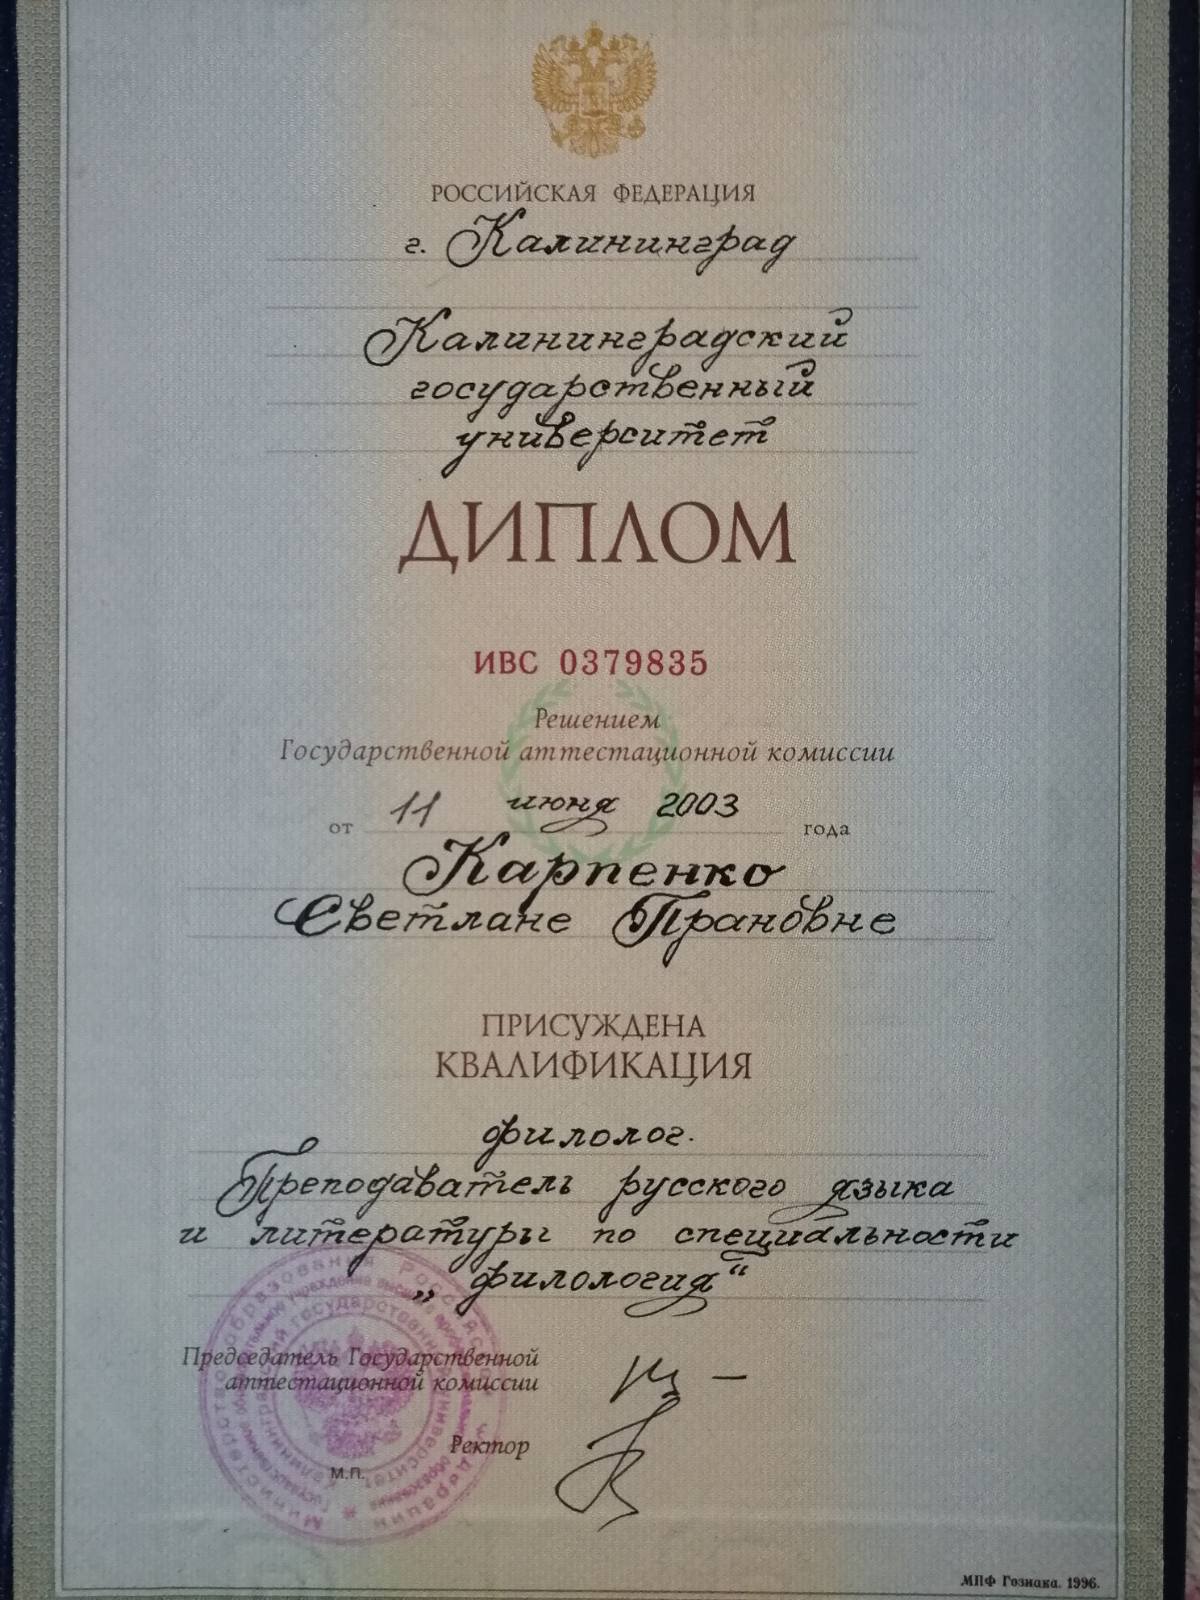 РОССИЙСКАЯ ФЕДЕРАЦИЯ
г. Калининград
Калининградский
государственный
университет
ДИПЛОМ
ИВС 0379835
Решением
Государственной аттестационной комиссии
от 11 июня 2003 года
Карпенко
Светлане Прановне
ПРИСУЖДЕНА
КВАЛИФИКАЦИЯ
филолог.
Преподаватель русского языка
и литературы по специальности
„филология“
Председатель Государственной
аттестационной комиссии
Ректор
М.П.
МПФ Гознака. 1996.